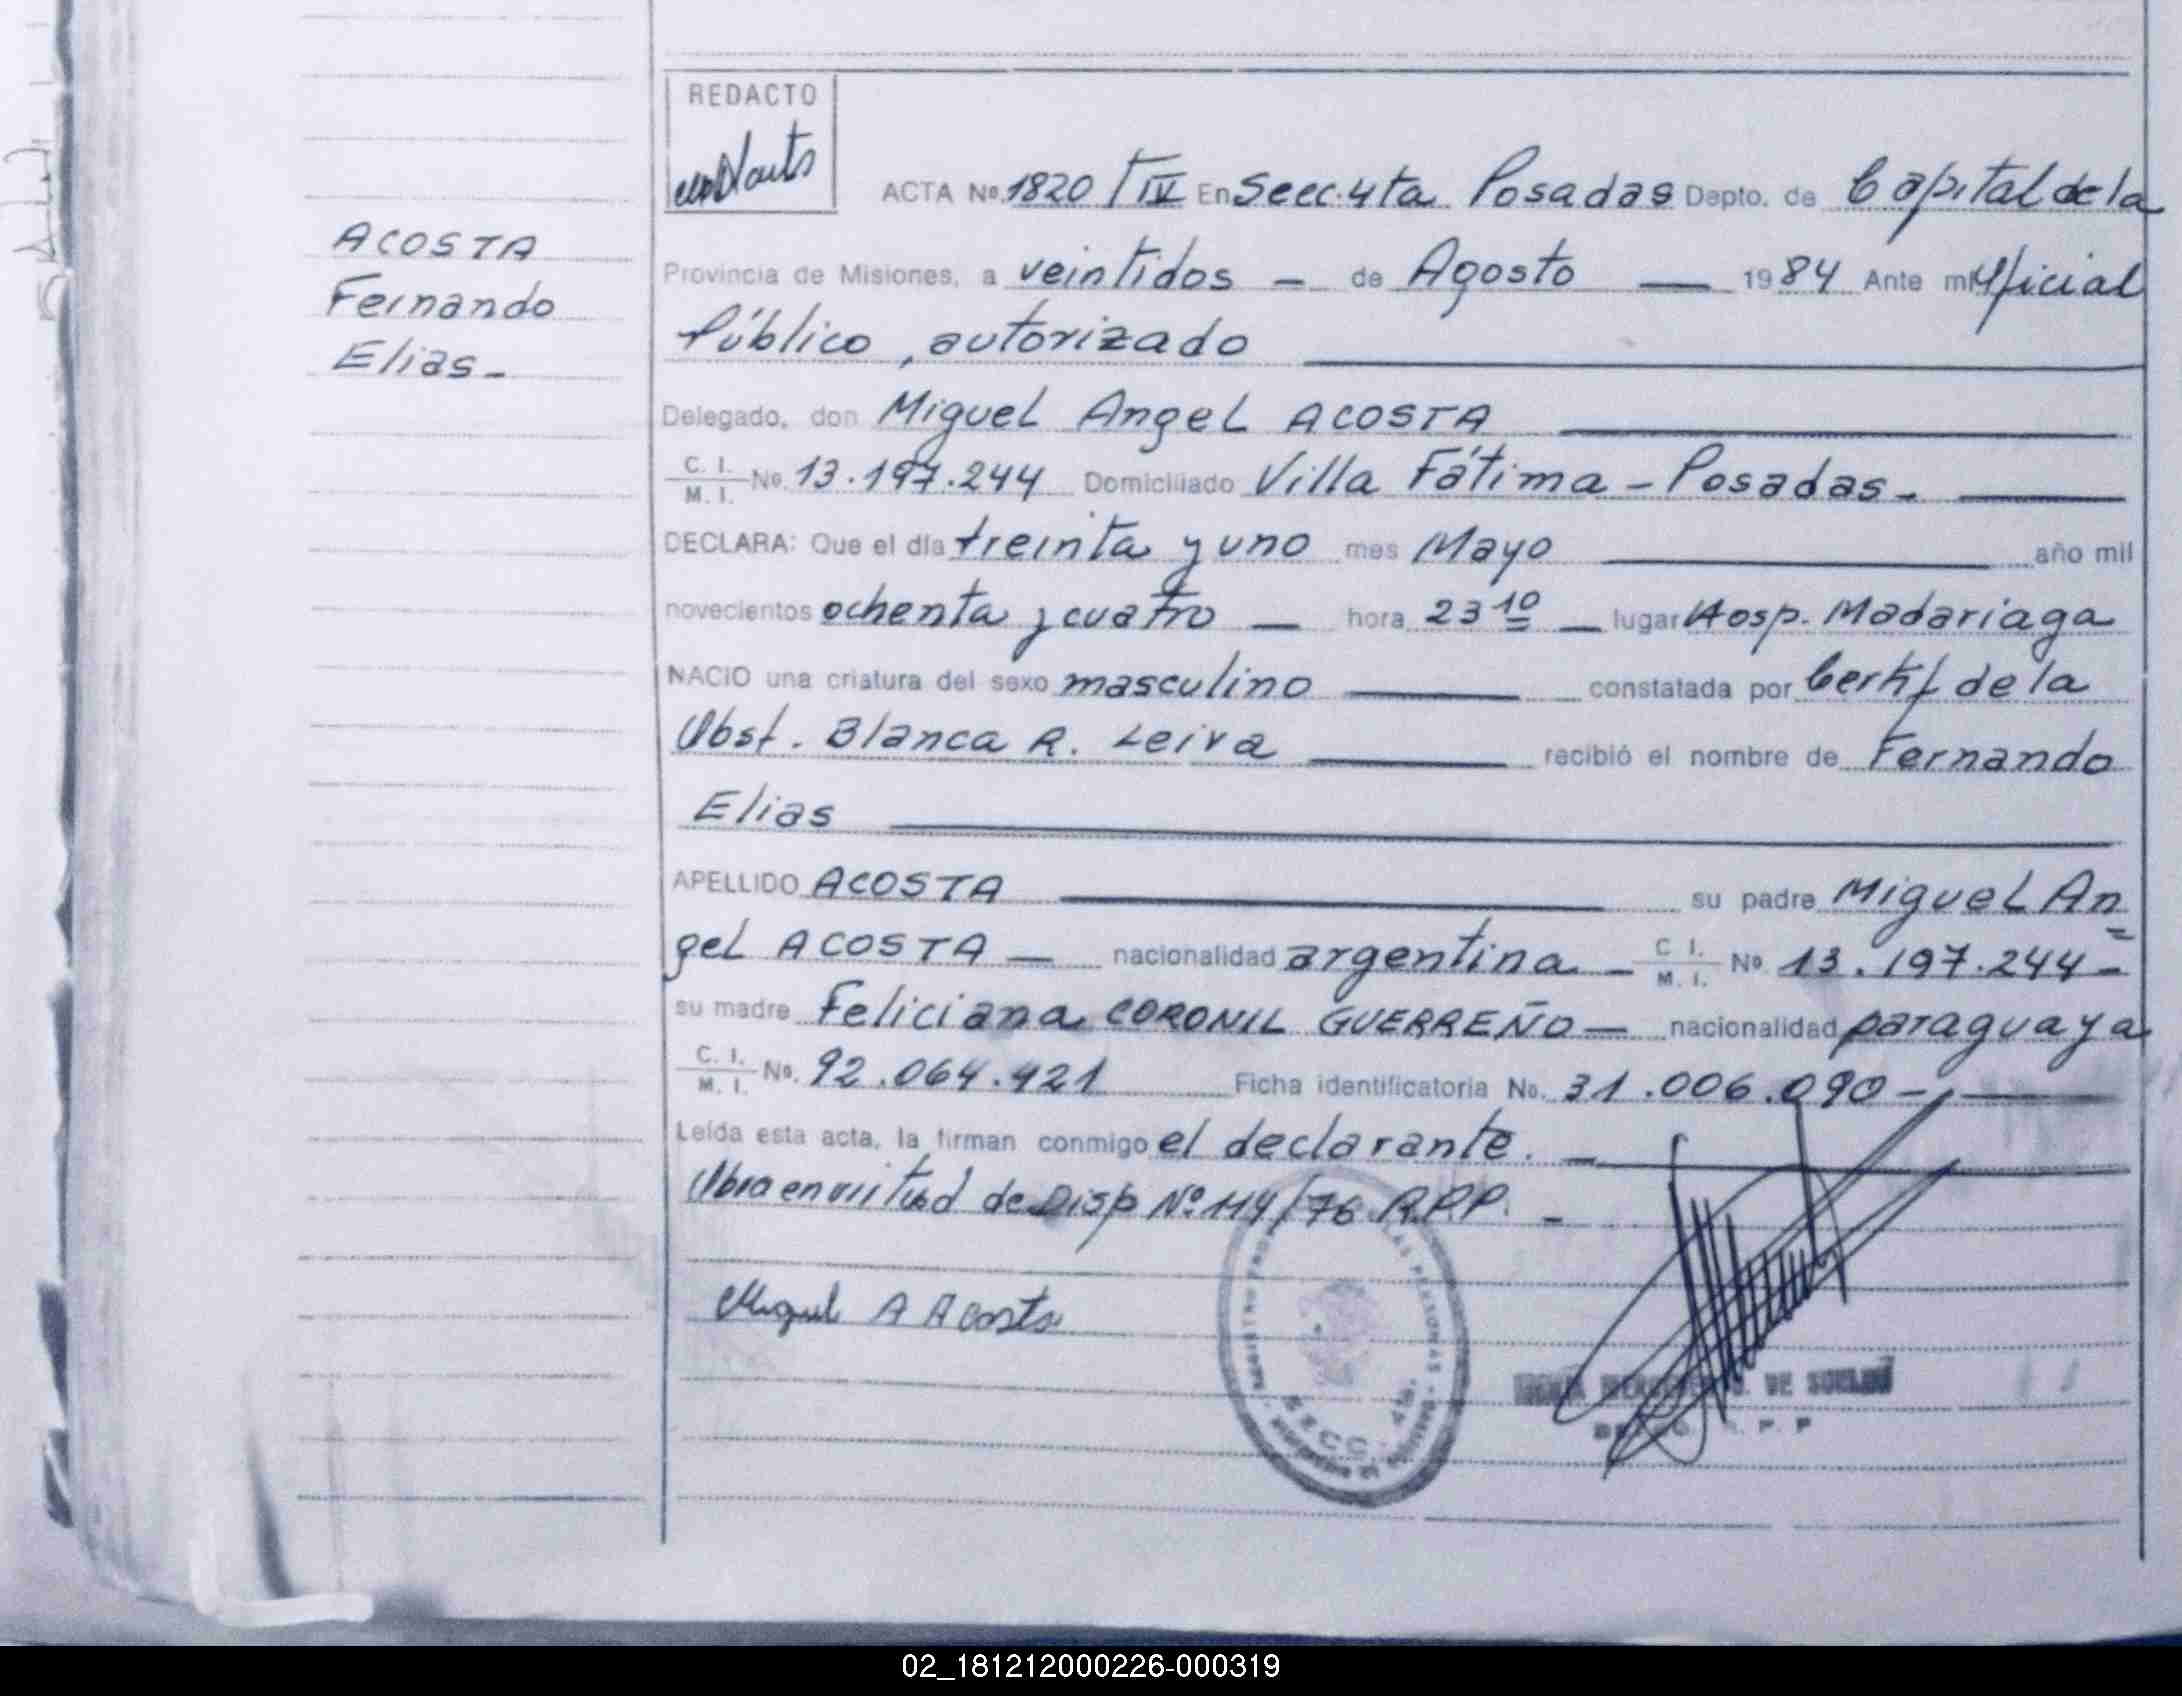 REDACTO
ACTA No. 1820 / T IV En Secc. 4ta. Posadas Depto. de Capital de la
ACOSTA
Fernando
Elias-
Provincia de Misiones, a veintidos - de Agosto — 1984 Ante mí Oficial
Público, autorizado
Delegado, don Miguel Angel ACOSTA
C. I. M. I. No. 13.197.244 Domiciliado Villa Fátima - Posadas -
DECLARA: Que el día treinta y uno mes Mayo año mil
novecientos ochenta y cuatro — hora 23 10 — lugar Hosp. Madariaga
NACIO una criatura del sexo masculino constatada por Certif de la
Obst. Blanca R. Leiva recibió el nombre de Fernando
Elias
APELLIDO ACOSTA su padre Miguel An
gel ACOSTA — nacionalidad argentina - C I. M. I. No 13.197.244 -
su madre Feliciana CORONIL GUERREÑO — nacionalidad paraguaya
C. I. M. I. No. 92.064.421 Ficha identificatoria No. 31.006.090 -
Leída esta acta, la firman conmigo el declarante. -
Obra en virtud de Disp Nº 114/76 R.P.P. -
Miguel A Acosta
DE SUELDO
02_181212000226-000319